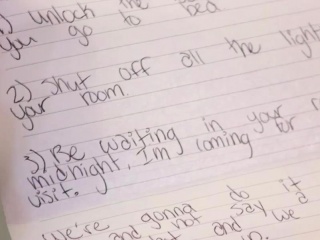 1) unlock the
you go to bed
2) Shut off all the light
your room.
3) Be waiting in your
midnight. I'm coming for
visit.
We're gonna do it
and not say a
and we